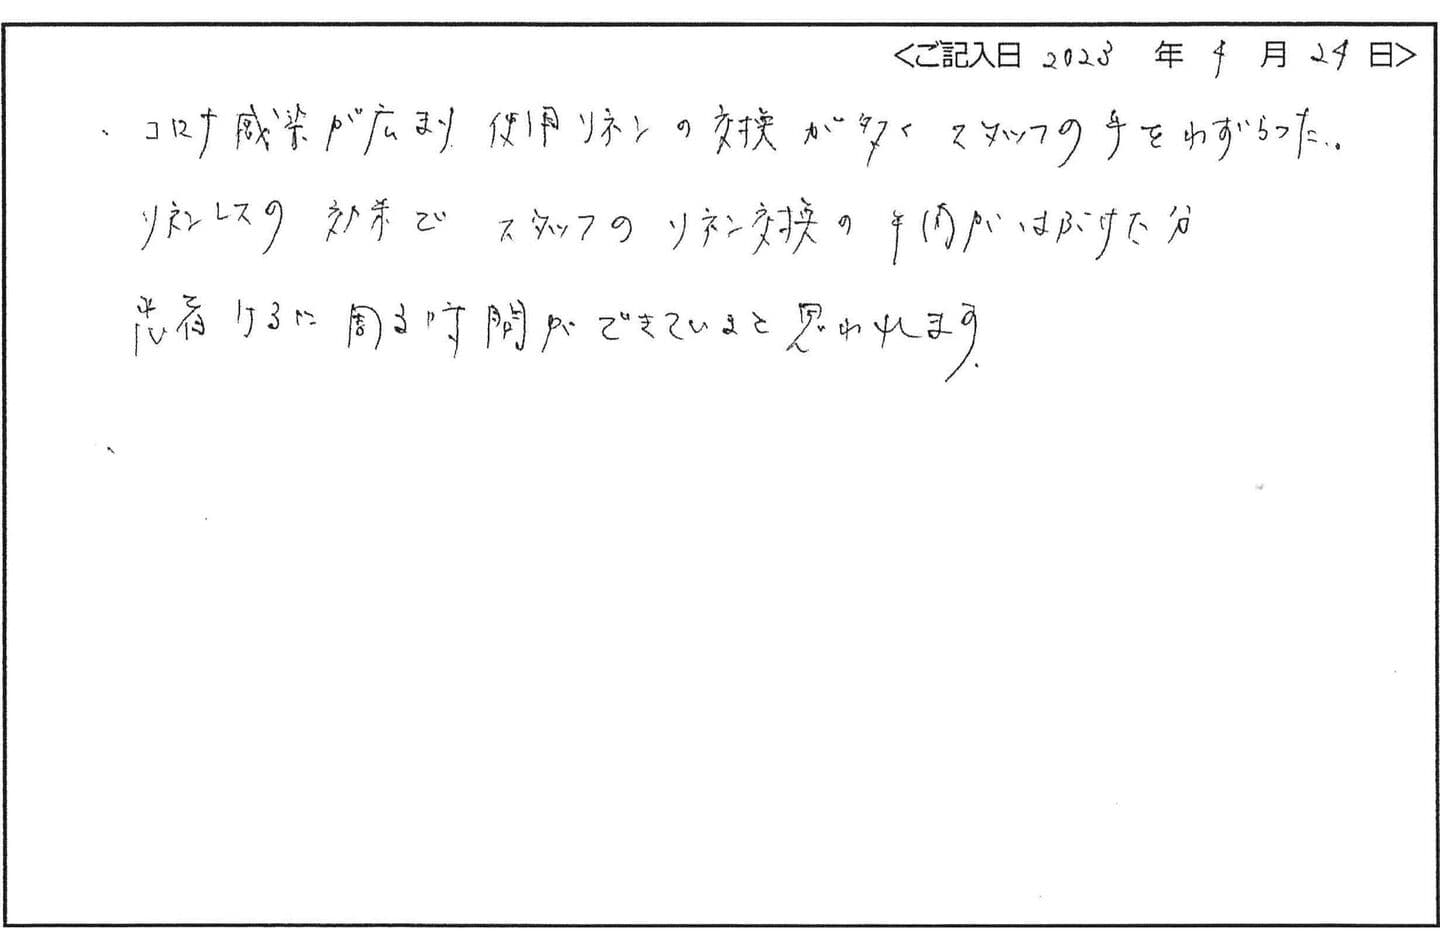 <ご記入日 2023 年 4 月 24 日>
・コロナ感染が広まり 使用リネンの交換が多く スタッフの手をわずらった。
リネンレスの 効果で スタッフの リネン交換の 手間が はぶけた分
患者 けるに 周る時間が できていまと思われます。